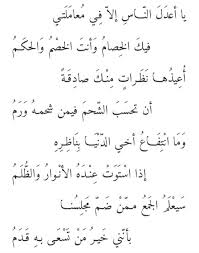 يا أعدَلَ النّاسِ إلاّ فِي مُعامَلَتي
فيكَ الخِصامُ وَأنتَ الخَصْمُ وَالحَكَمُ
أُعِيذُها نَظَراتٍ مِنْكَ صادِقَةً
أن تحسَبَ الشّحمَ فيمن شحمهُ وَرَمُ
وَمَا انْتِفَاعُ أخي الدّنْيَا بِنَاظِرِهِ
إذا اسْتَوَتْ عِنْدَهُ الأنْوارُ وَالظُّلَمُ
سَيعْلَمُ الجَمعُ ممّنْ ضَمّ مَجلِسُنا
بأنّني خَيرُ مَنْ تَسْعَى بهِ قَدَمُ